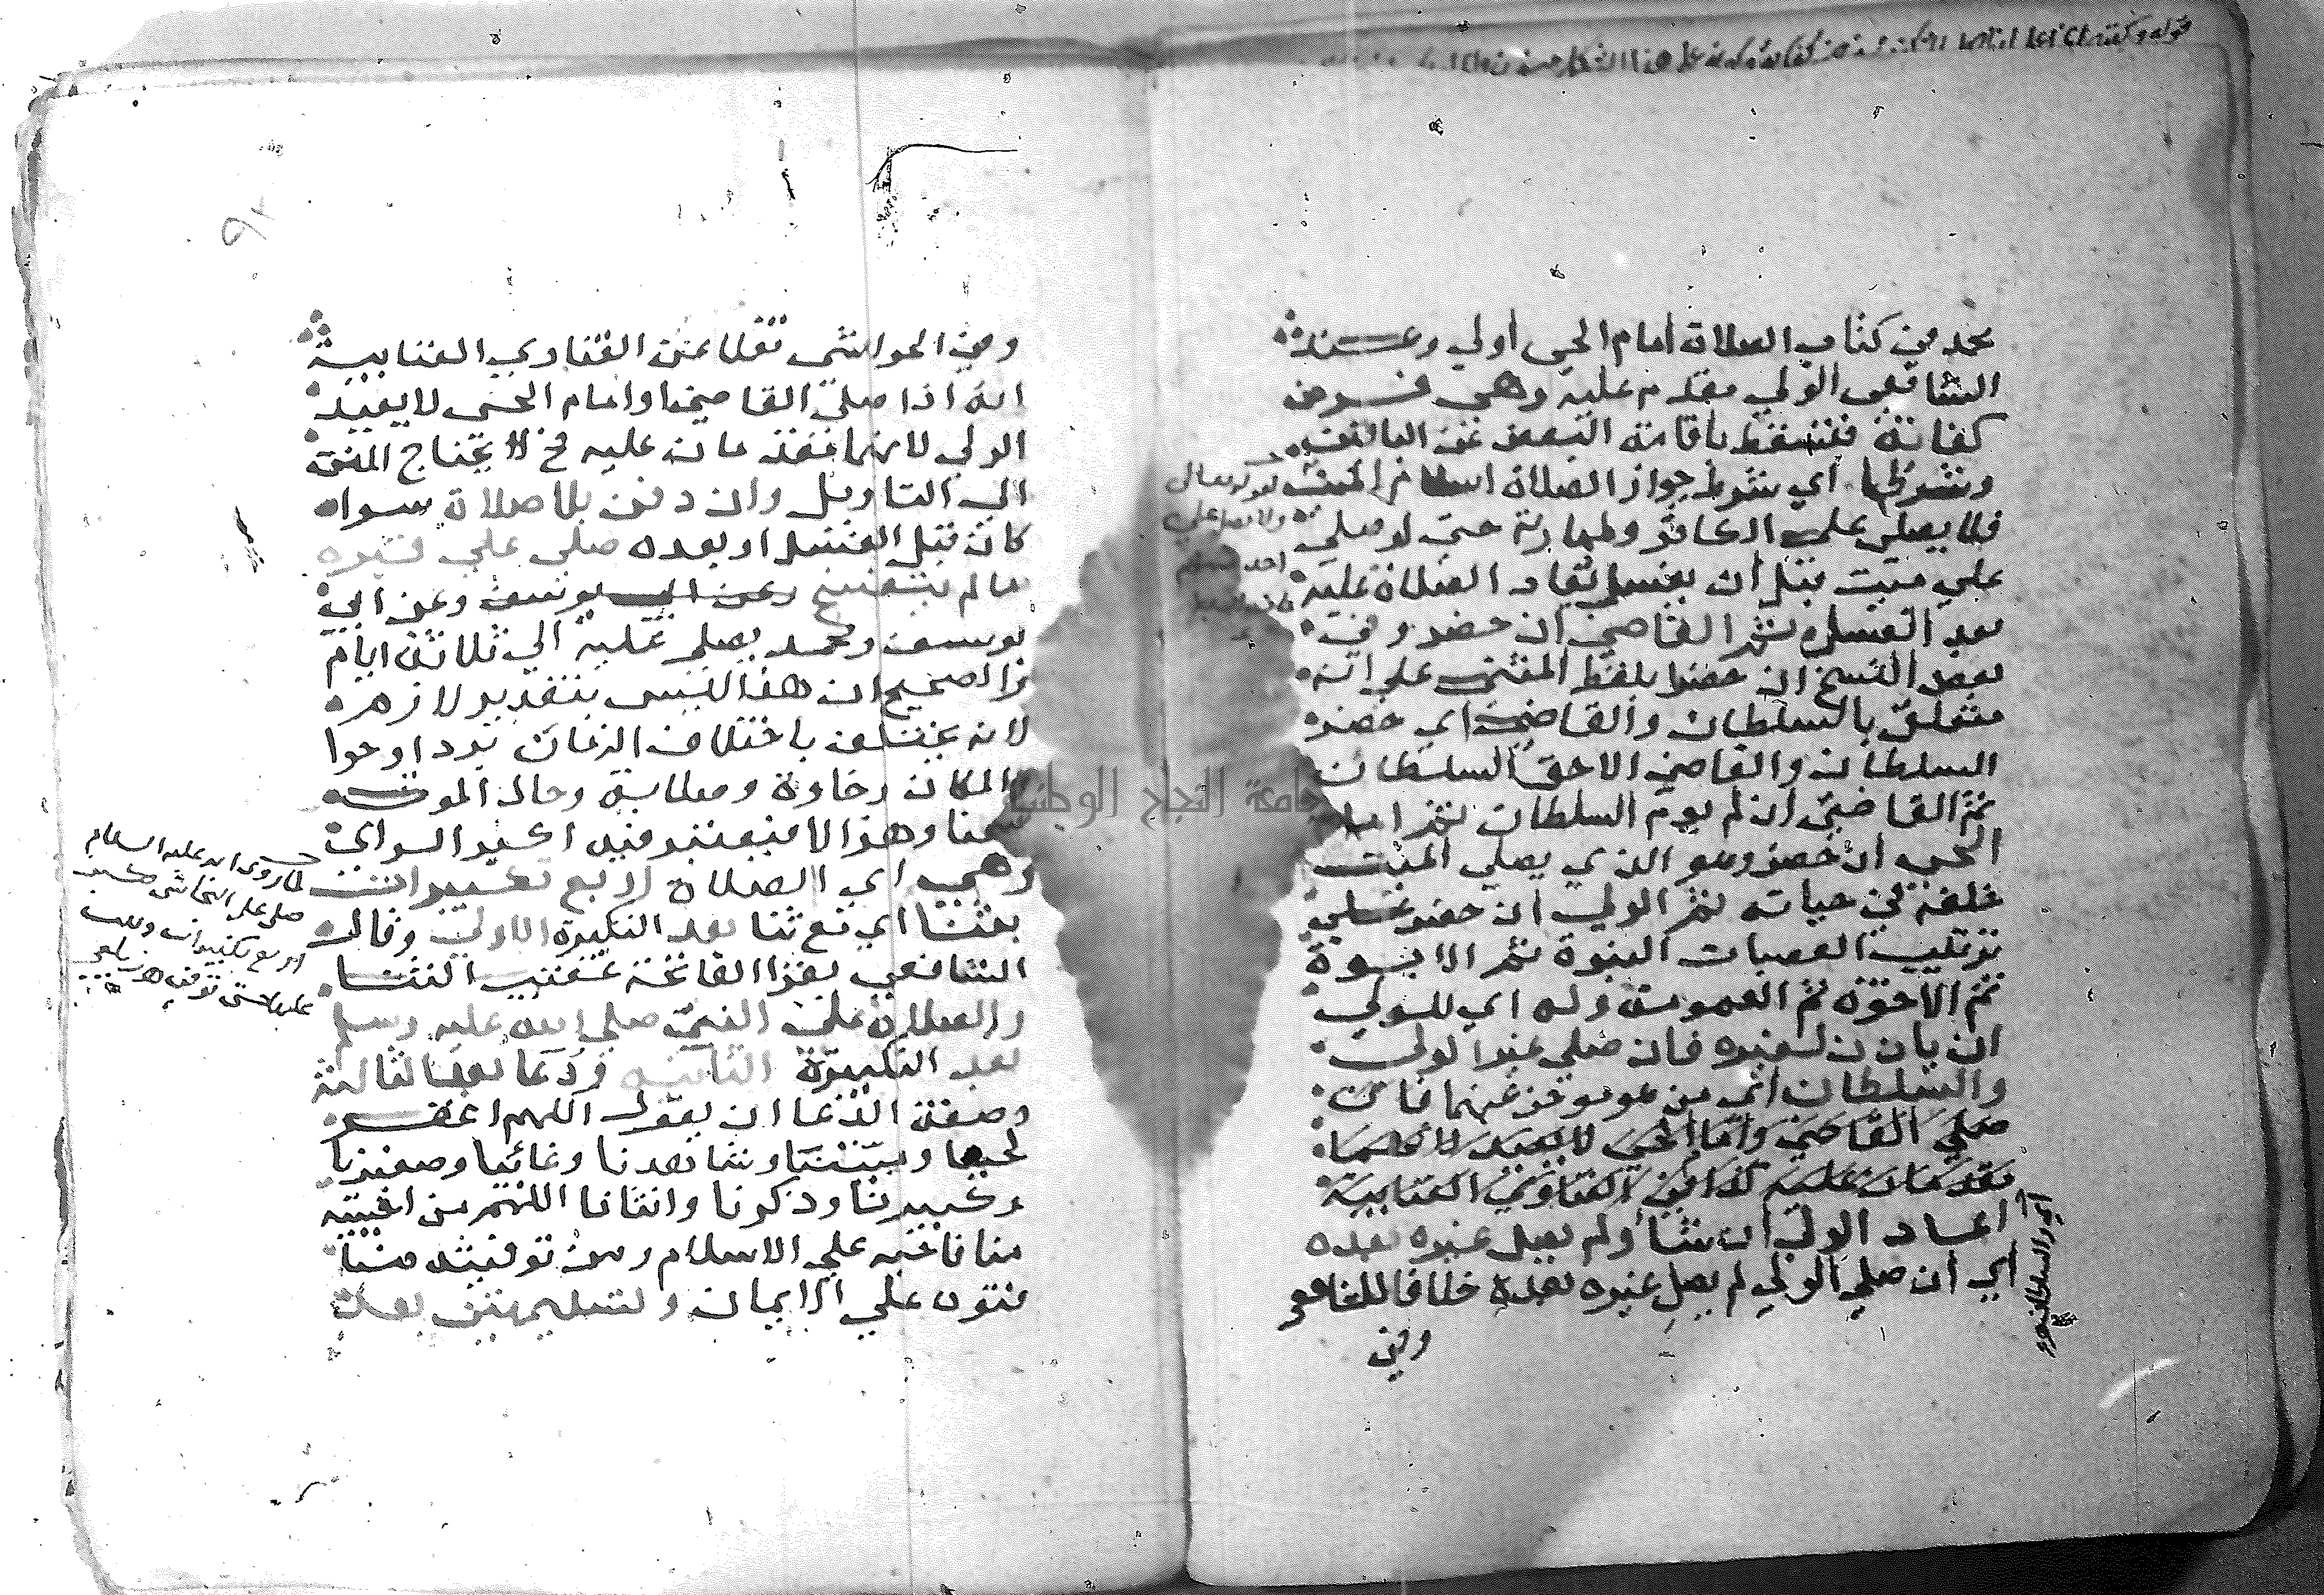 محمد من كتاب الصلاة امام الحي اولي وعند
الشافعي الولي مقدم عليه وهي فرض
كفاية فتسقط باقامة البعض عن الباقين
وشرطها اي شرط جواز الصلاة اسلام الميت
فلا يصلي علي الكافر وطهارته حتي لو صلي
علي ميت قبل ان يغسل تعاد الصلاة عليه
بعد الغسل ثم القاضي ان حضر وفي
بعض النسخ ان حضرا بلفظ المثنى علي انه
متعلق بالسلطان والقاضي اي حضر
السلطان والقاضي الاحق السلطان
ثم القاضي ان لم يوم السلطان ثم امام
الحي ان حضر وهو الذي يصلي الميت
خلفه في حياته ثم الولي ان حضر علي
ترتيب العصبات البنوة ثم الابوة
ثم الاخوة ثم العمومة وله اي للولي
ان ياذن لغيره فان صلي غير الولي
والسلطان اي من هو موخر عنهما فان
صلي القاضي وامام الحي لا يعيد لانهما
مقدمان عليه كذا في الفتاوي العتابية
اعاد الولي ان شا ولم يصل غيره بعده
اي ان صلي الولي لم يصل غيره بعده خلافا للشافعي
وفي
لقوله تعالى
ولا تصل علي
احد منهم
وفي الحواشي نقلا عن الفتاوي العتابية
انه اذا صلي القاضي او امام الحي لا يعيد
الولي لانهما مقدمان عليه فح لا يحتاج المتن
الي التاويل وان دفن بلا صلاة سواء
كان قبل الغسل او بعده صلي علي قبره
ما لم يتفسخ وعن ابي يوسف وعن ابي
يوسف ومحمد يصلي عليه الي ثلاثة ايام
والصحيح ان هذا ليس بتقدير لازم
لانه يختلف باختلاف الزمان بردا وحرا
والمكان رخاوة وصلابة وحال الموت
سمنا وهزالا فيعتبر فيه اكبر الراي
وهي اي الصلاة اربع تكبيرات
بثنا اي مع ثنا بعد التكبيرة الاولي وقال
الشافعي يقرا الفاتحة عقيب الثنا
والصلاة علي النبي صلي الله عليه وسلم
بعد التكبيرة الثانية ودعا بعد الثالثة
وصفة الدعا ان يقول اللهم اغفر
لحينا وميتنا وشاهدنا وغائبنا وصغيرنا
وكبيرنا وذكرنا وانثانا اللهم من احييته
منا فاحيه علي الاسلام ومن توفيته منا
فتوفه علي الايمان وتسليمتين بعد
لما روي انه عليه السلام
صلي علي النجاشي فكبر
اربع تكبيرات وثبت
عليها حتى توفي زيلعي